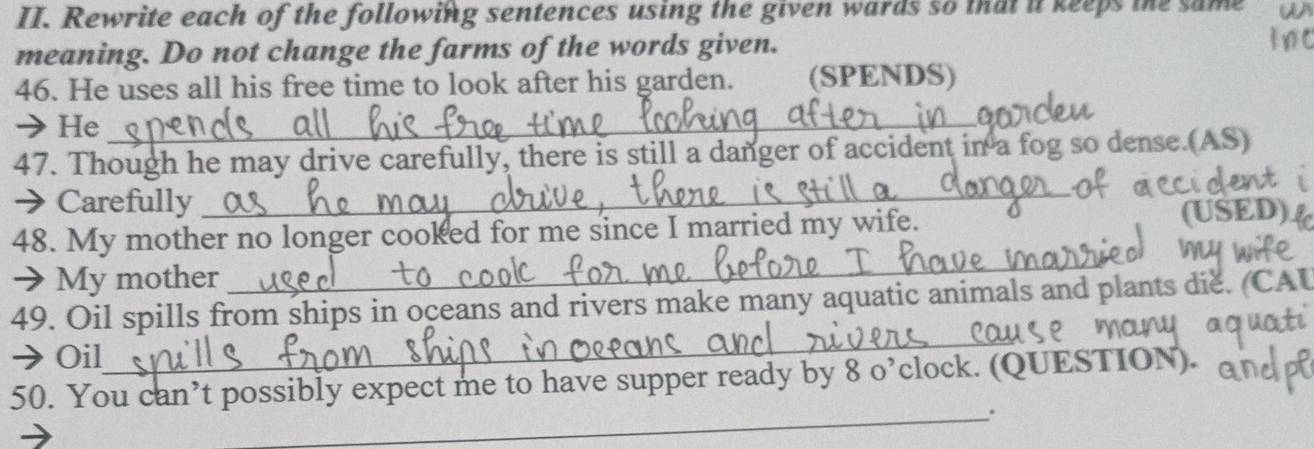 II. Rewrite each of the following sentences using the given wards so that it keeps the same
meaning. Do not change the farms of the words given.
46. He uses all his free time to look after his garden. (SPENDS)
→ He spends all his free time looking after in garden
47. Though he may drive carefully, there is still a danger of accident in a fog so dense.(AS)
→ Carefully as he may drive, there is still a danger of accident i
48. My mother no longer cooked for me since I married my wife. (USED)
→ My mother used to cook for me before I have married my wife
49. Oil spills from ships in oceans and rivers make many aquatic animals and plants die. (CAU
→ Oil spills from ships in oceans and rivers cause many aquati
50. You can't possibly expect me to have supper ready by 8 o'clock. (QUESTION). and pl
→ .